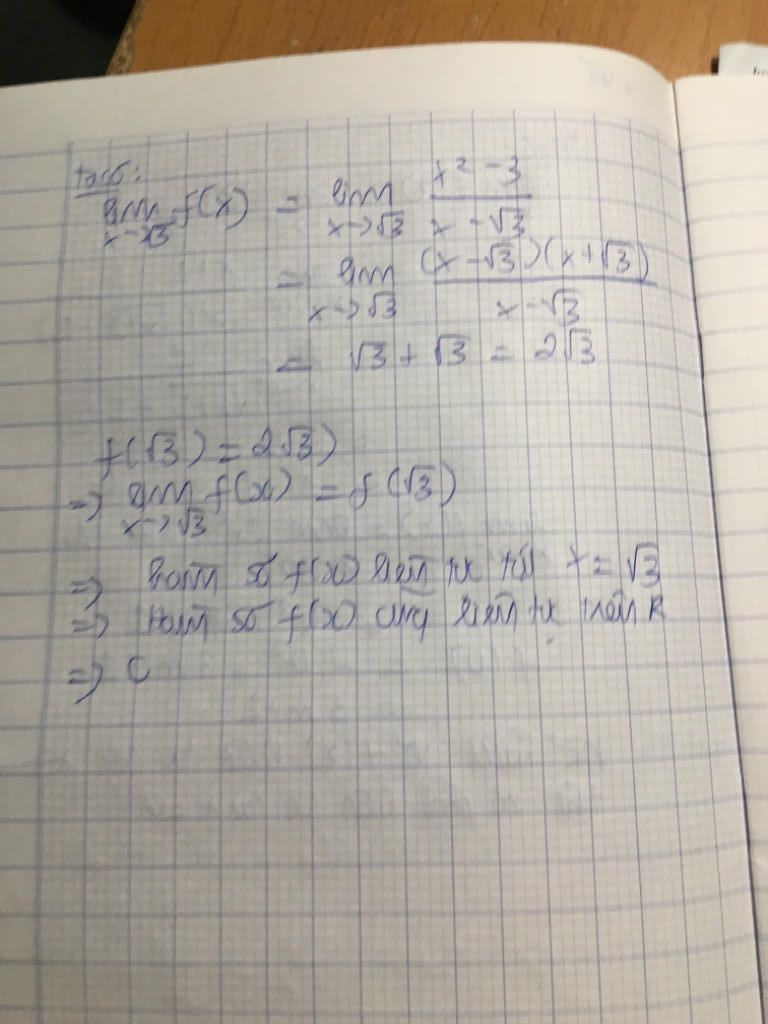 lim f(x) = lim x² - 3 / x - √3
x→√3 x→√3
= lim (x - √3)(x + √3) / x - √3
x→√3
= √3 + √3 = 2√3
f(√3) = 2√3)
=> lim f(x) = f(√3)
x→√3
=> hàm số f(x) liên tục tại x = √3
=> Hàm số f(x) cũng liên tục trên R
=> C